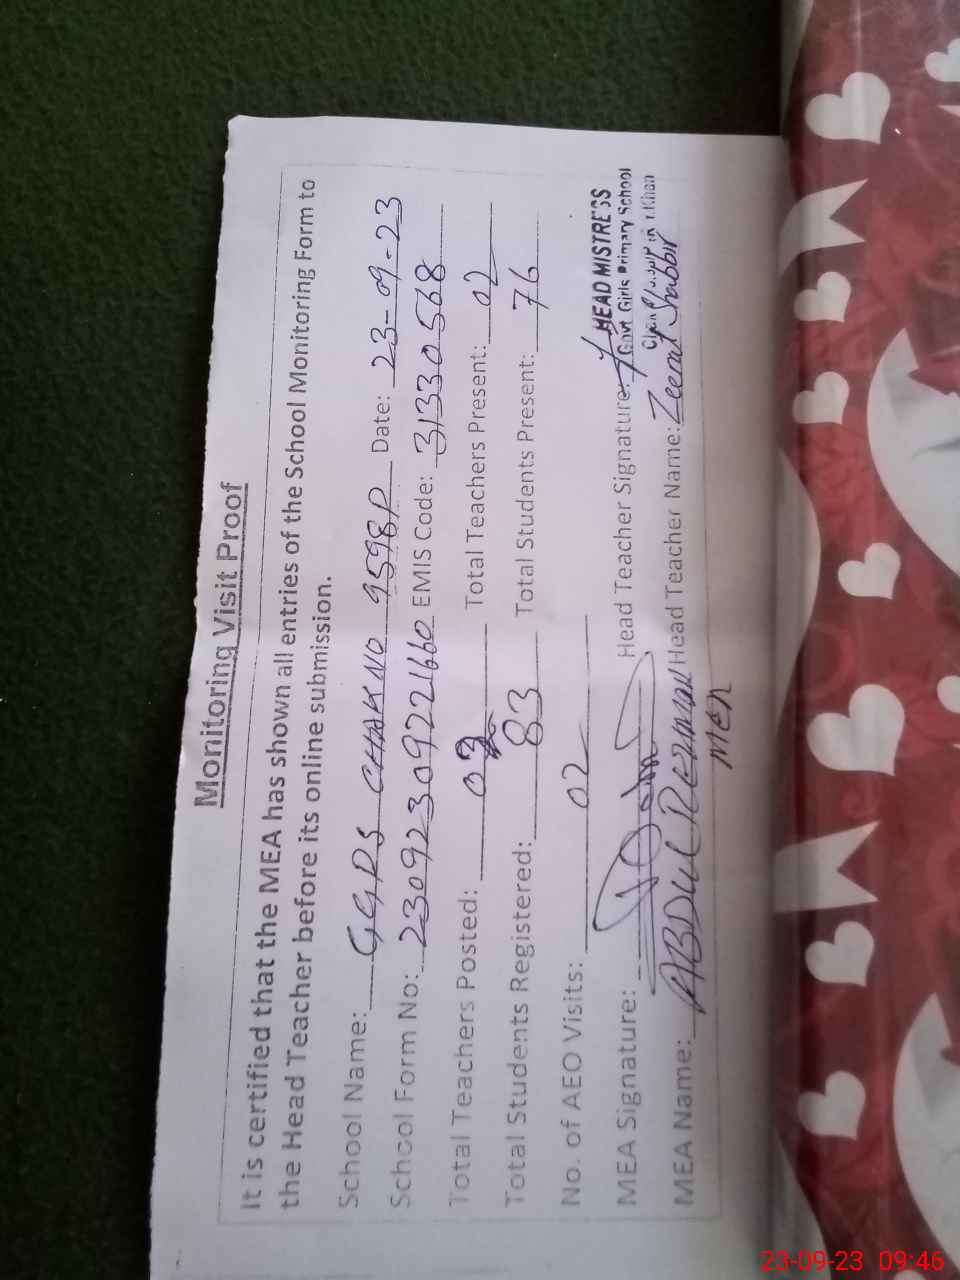 Monitoring Visit Proof
It is certified that the MEA has shown all entries of the School Monitoring Form to
the Head Teacher before its online submission.
School Name: GGPS CHAK NO 9598P Date: 23-09-23
School Form No: 23092309221660 EMIS Code: 31330568
Total Teachers Posted: 02 Total Teachers Present: 02
Total Students Registered: 83 Total Students Present: 76
No. of AEO Visits: 02
MEA Signature: Head Teacher Signature:
HEAD MISTRESS
Govt Girls Primary School
Khan
MEA Name: ABDUL REHMAN Head Teacher Name: Zeenat Shabbir
MEA
23-09-23 09:46